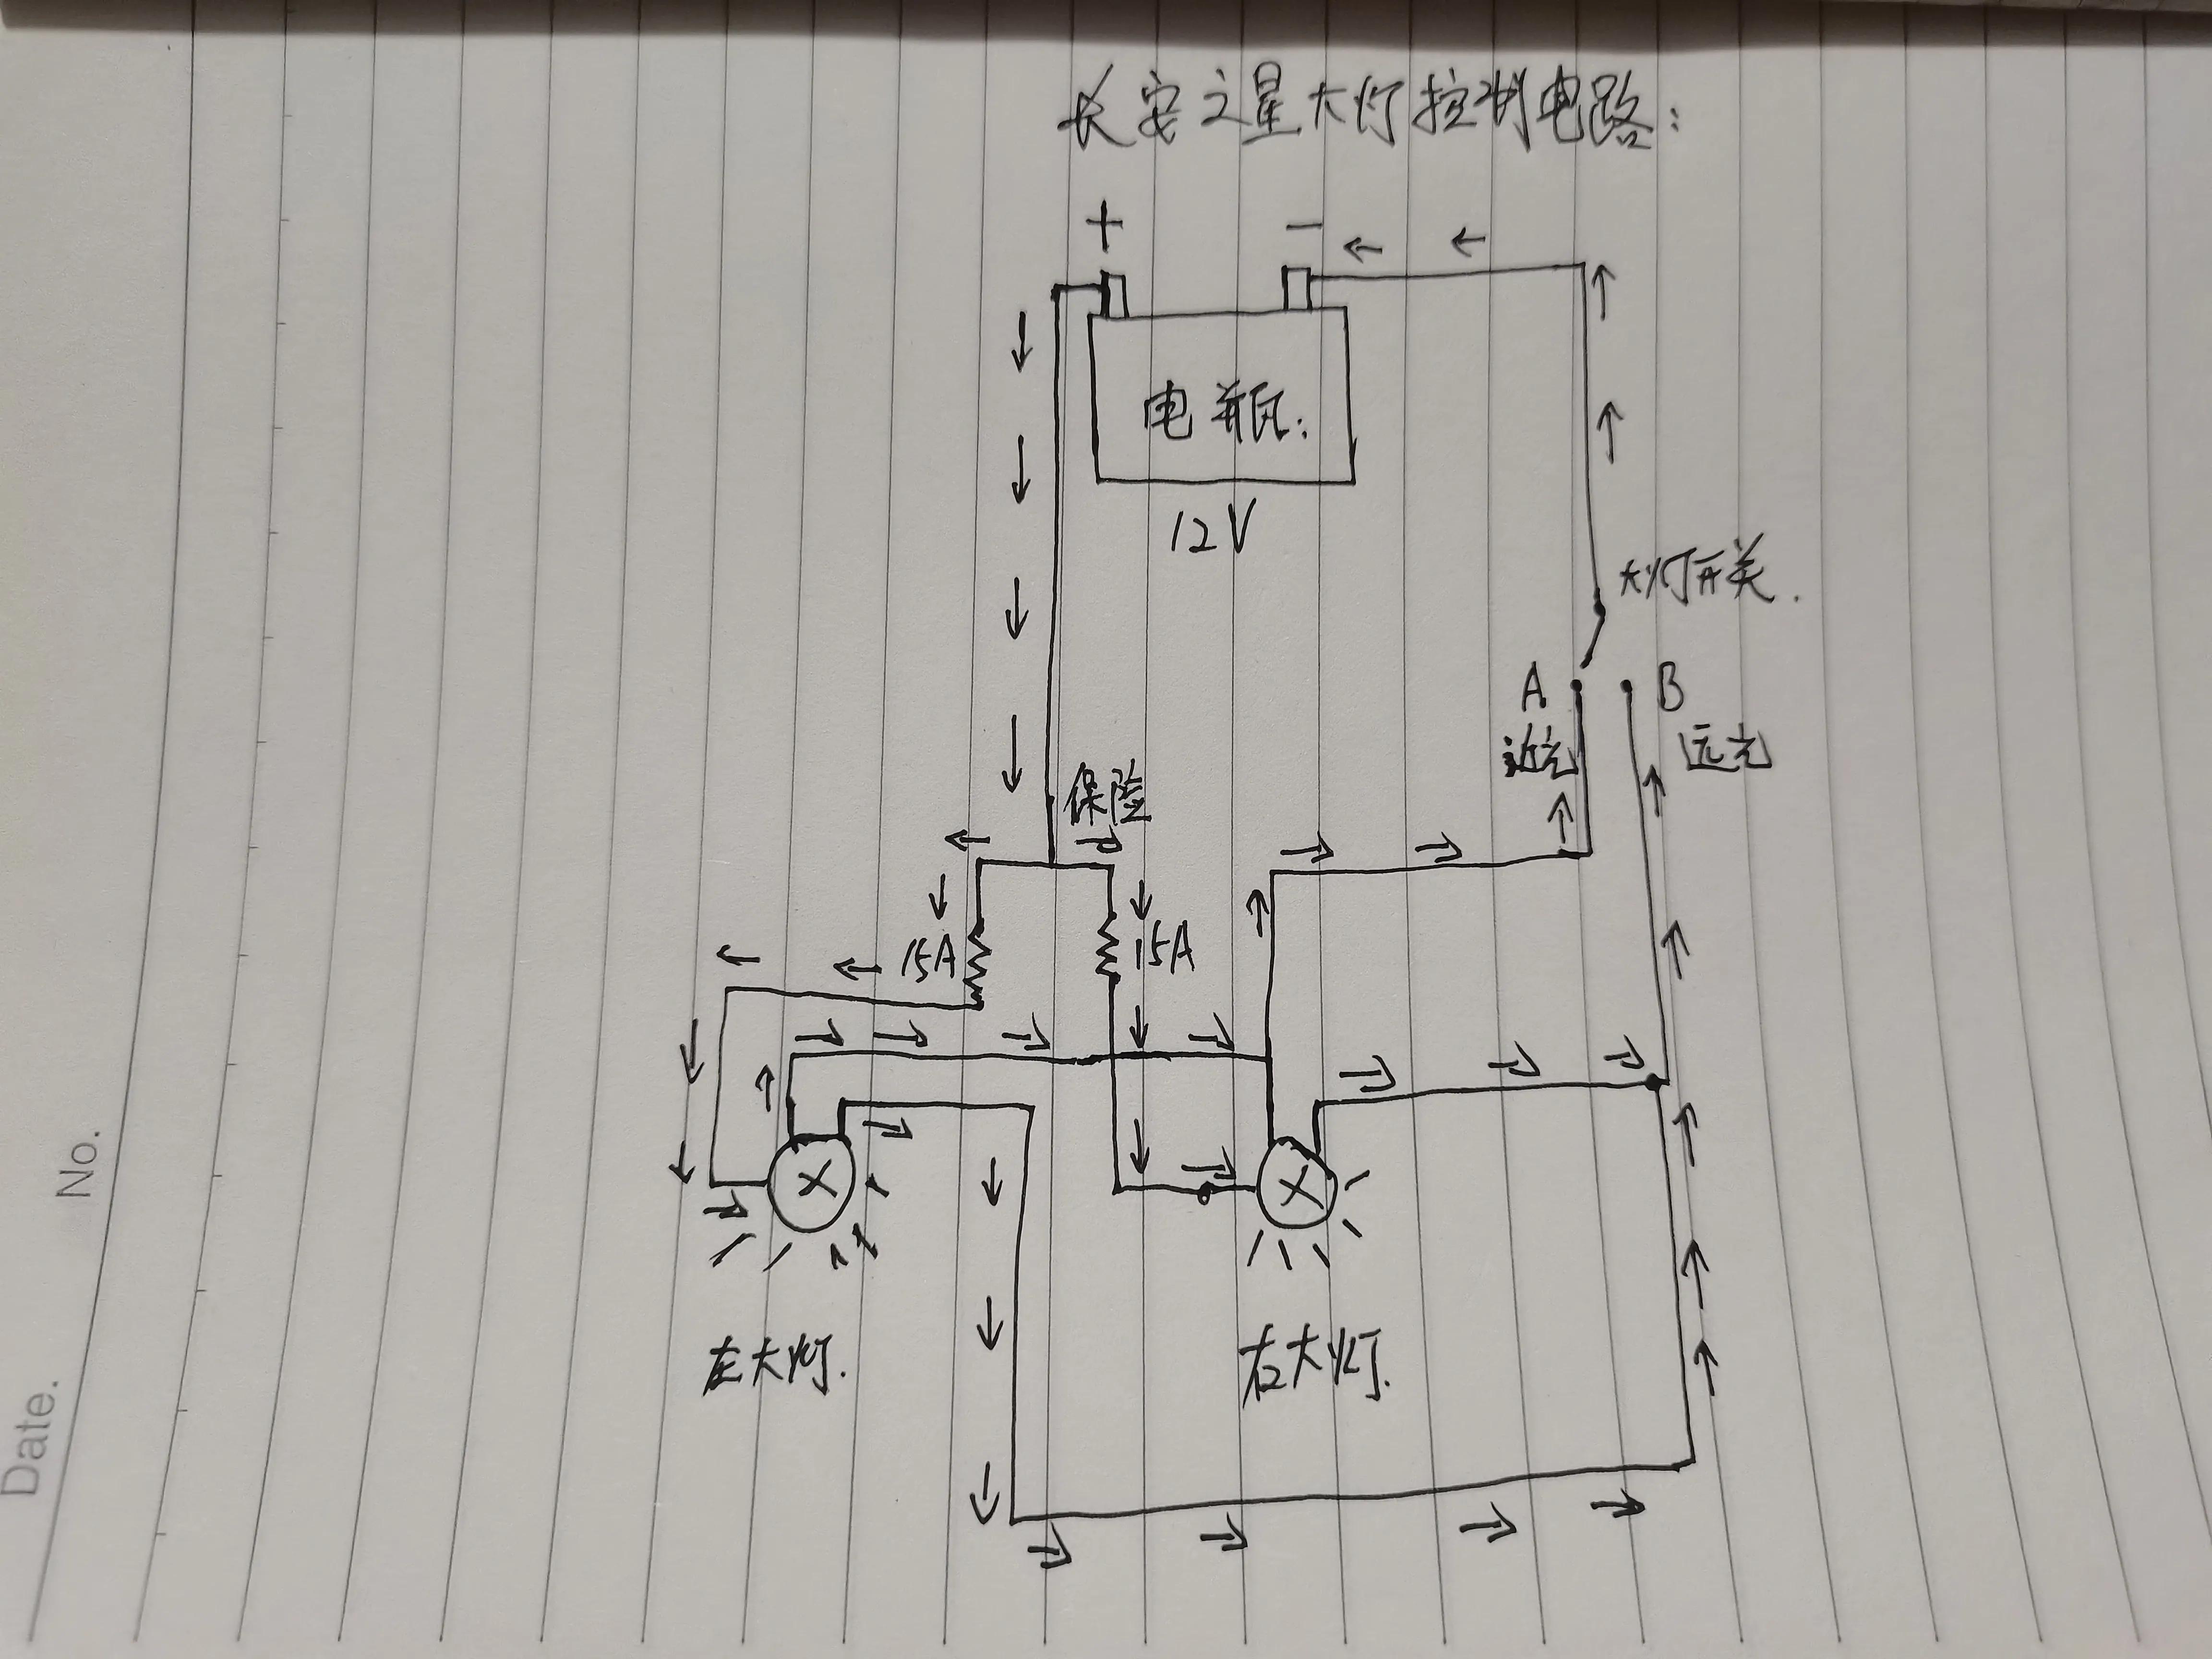 长安之星大灯控制电路:
+ −
电瓶:
12V
大灯开关.
A B
近光 远光
保险
15A 15A
左大灯. 右大灯.
No.
Date.